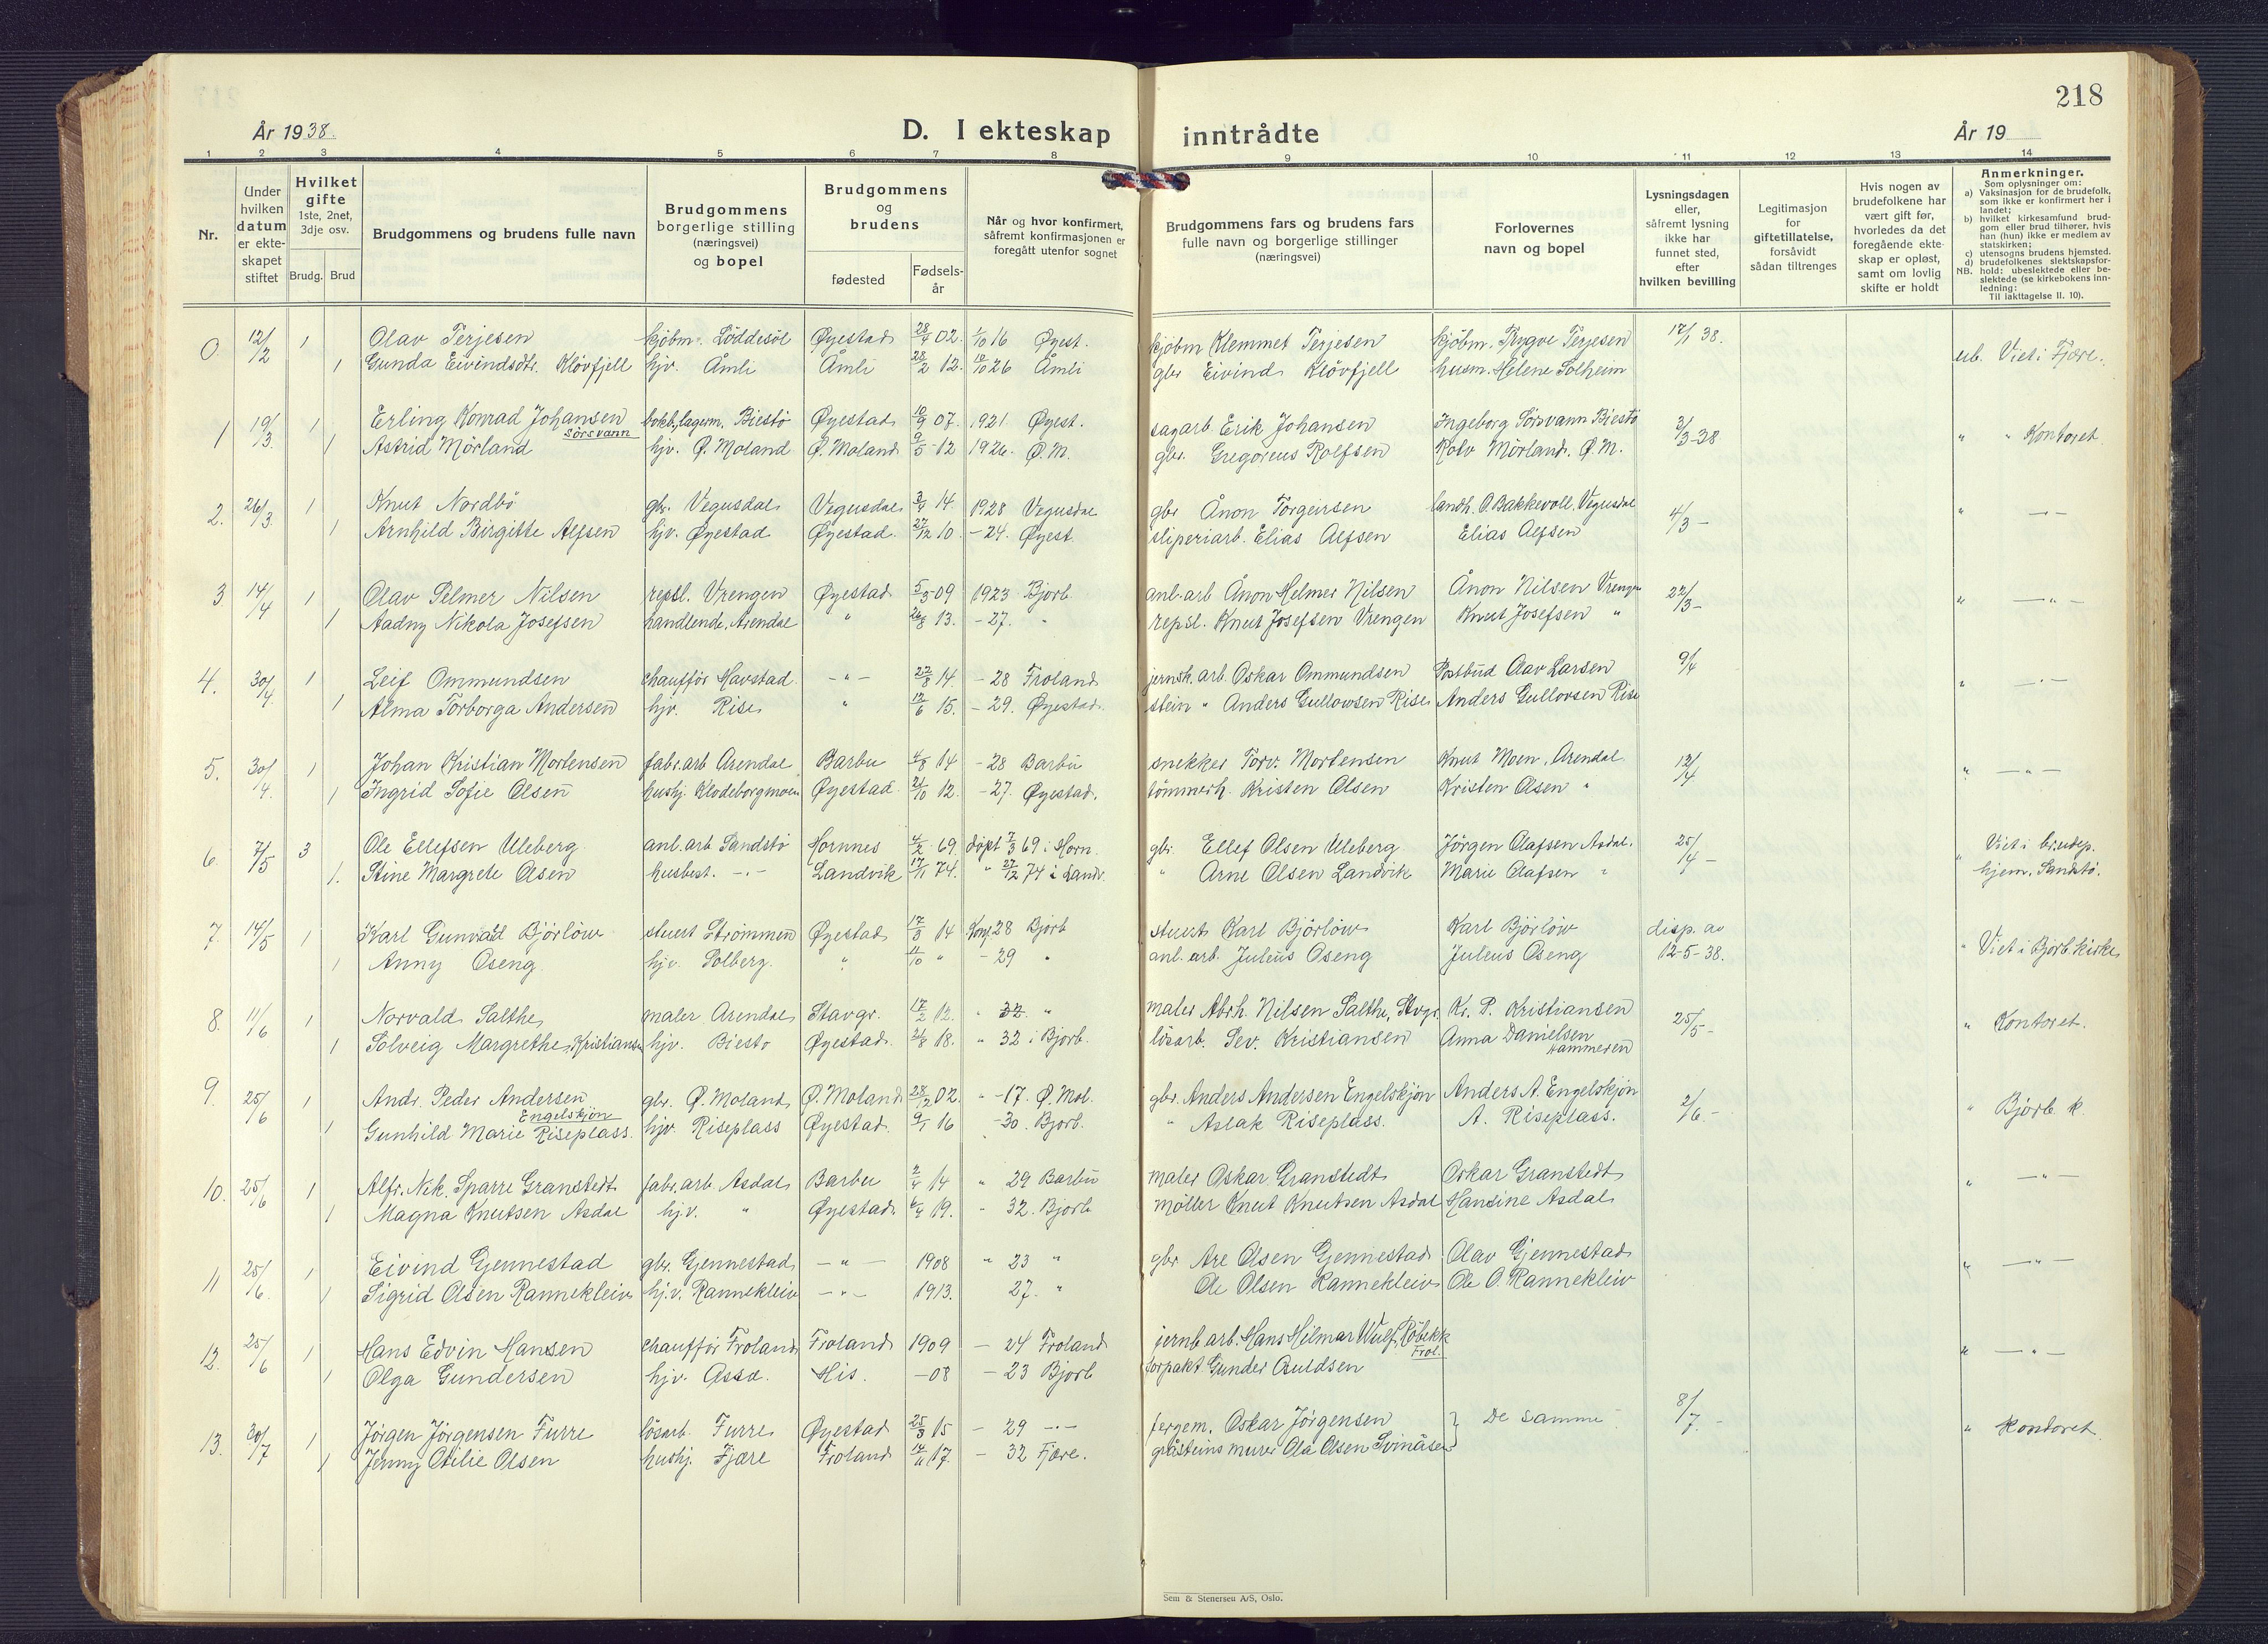 218
År 1938.
D. I ekteskap inntrådte
År 19
1 2 3 4 5 6 7 8 9 10 11 12 13 14
Nr.
Under hvilken datum er ekteskapet stiftet
Hvilket gifte 1ste, 2net, 3dje osv.
Brudg. Brud
Brudgommens og brudens fulle navn
Brudgommens borgerlige stilling (næringsvei) og bopel
Brudgommens og brudens
fødested
Fødselsår
Når og hvor konfirmert, såfremt konfirmasjonen er foregått utenfor sognet
Brudgommens fars og brudens fars fulle navn og borgerlige stillinger (næringsvei)
Forlovernes navn og bopel
Lysningsdagen eller, såfremt lysning ikke har funnet sted, efter hvilken bevilling
Legitimasjon for giftetillatelse, forsåvidt sådan tiltrenges
Hvis nogen av brudefolkene har vært gift før, hvorledes da det foregående ekteskap er opløst, samt om lovlig skifte er holdt
Anmerkninger.
Som oplysninger om:
a) Vaksinasjon for de brudefolk, som ikke er konfirmert her i landet;
b) hvilket kirkesamfund brudgom eller brud tilhører, hvis han (hun) ikke er medlem av statskirken;
c) utensogns brudens hjemsted.
d) brudefolkenes slektskapsforhold: ubeslektede eller beslektede (se kirkebokens innledning:
NB. Til iakttagelse II. 10).
0 12/2 1 Olav Terjesen kjöbm. Löddesöl Øyestad 28/4 02. 1/10 16 Øyest. kjöbm Klemmet Terjesen kjöbm. Trygve Terjesen 17/1 38.
1 Gunda Eivindsdtr. Klövfjell hjv. Åmli Åmli 28/2 12. 10/10 26 Åmli gbr Eivind Klövfjell husm. Helene Solheim ub. Viet i Fjære.
1 19/3. 1 Erling Konrad Johansen Sörsvann bokb, lagerm. Biestö Øyestad 10/9 07. 1921. Øyest. sagarb. Erik Johansen Ingeborg Sörsvann Biestö 3/3-38
1 Astrid Mörland hjv. Ø. Moland Ø. Moland 9/5-12 1926. Ø.M. gbr. Gregorius Rolfsen Rolv Mörland. Ø.M. " " Kontoret.
2. 26/3. 1 Knut Nordbö gbr. Vegusdal Vegusdal 3/4 14. 1928 Vegusdal gbr Ånon Torgeirsen landh. O. Bakkevoll, Vegusdal 4/3 -
1 Arnhild Birgitte Alfsen hjv. Øyestad Øyestad. 27/12 10. -24. Øyest. sliperiarb. Elias Alfsen Elias Alfsen " -"-
3 14/4 1 Olav Selmer Nilsen repsl. Vrengen Øyestad 5/5-09 1923 Bjorb anl.arb Ånon Helmer Nilsen Ånon Nilsen Vrengen 22/3-
1 Aadny Nikola Josefsen handlende, Arendal " 26/8 13. -27. " repsl. Knut Josefsen Vrengen Knut Josefsen " " -"-
4. 30/4. 1 Leif Ommundsen chaufför Havstad. -"- 22/8 14 - 28 Froland jernsk. arb. Oskar Ommundsen Postbud Olav Larsen 9/4
1 Alma Torborga Andersen hjv. Rise " 12/6 15. - 29. Øyestad. stein " Anders Gullovsen Rise Anders Gullovsen Rise " -"-
5. 30/4. 1 Johan Kristian Mortensen fabr.arb Arendal Barbu 4/8 14 - 28 Barbu snekker Torv. Mortensen Knut Moen. Arendal 12/4
1 Ingrid Sofie Olsen hushj. Klodeborgmoen Øyestad. 21/10 12. -27. Øyestad. tömmerh. Kristen Olsen Kristen Olsen " " -"-
6. 7/5 3 Ole Ellefsen Uleberg anl.arb Sandstö Hornnes 4/2 69. döpt 7/3 69 i Horn. gbr. Ellef Olsen Uleberg Jörgen Olafsen Asdal. 25/4 - Viet i brudep.
1. Stine Margrete Olsen husbest. -"- Landvik 17/11 74. " 27/12 74 i Landv. " Arne Olsen Landvik Marie Olafsen " " hjem. Sandstö.
7. 14/5 1 Karl Gunvald Björlöw stuert Strömmen Øyestad 17/3 14 Konf 28 Bjorb stuert Karl Björlöw Karl Björlöw disp. av
1 Anny Oseng. hjv. Solberg. " 11/10 " - 29 " anl. arb. Julius Oseng Julius Oseng 12-5-38. " Viet i Bjorb. kirke
8. 11/6 1 Norvald Salthe maler Arendal Stavgr. 17/2 12. " 32 " maler Abrh. Nilsen Salthe, Stvgr. Kr. P. Kristiansen 25/5 -
1 Solveig Margrethe Kristiansen hjv. Biestö Øyestad. 21/8 18. " 32 i Bjorb. lösarb. Sev. Kristiansen Anna Danielsen Hammeren " Kontoret.
9. 25/6 1 Andr. Peder Andersen Engelskjön gbr. Ø. Moland Ø. Moland 28/12 02. " -17. Ø. Mol. gbr. Anders Andersen Engelskjön Anders A. Engelskjön 2/6. -
1 Gunhild Marie Riseplass. hjv. Riseplass Øyestad. 9/1 16 -30. Bjorb. " Aslak Riseplass. A. Riseplass. " Bjorb. k.
10. 25/6 1 Alfr. Nik. Sparre Granstedt fabr.arb Asdal Barbu 2/4 14 " 29 Barbu maler Oskar Granstedt Oskar Granstedt
1 Magna Knutsen Asdal hj.v. " Øyestad. 6/4 19. " 32. Bjorb möller Knut Knutsen Asdal Hansine Asdal " -"-
11 25/6. 1 Eivind Gjennestad gbr. Gjennestad -"- 1908 " 23 " gbr Are Olsen Gjennestad Olav Gjennestad
1 Sigrid Olsen Rannekleiv hj.v. Rannekleiv -"- 1913. 27. " Ole Olsen Rannekleiv Ole O. Rannekleiv " -"-
12. 25/6 1 Hans Edvin Hansen chaufför Froland Froland 1909 - 24 Froland jernb arb. Hans Hilmar Wulf, Röbekk Frol.
1 Olga Gundersen hjv. Asso. His. -08 - 23 Bjorb forpakt Gunder Auldsen " -"-
13. 30/7 1 Jörgen Jörgensen Furre lösarb. Furre Øyestad 25/3 15 - 29 -"- fergem. Oskar Jörgensen } De samme 8/7. -
1 Jenny Otilie Olsen hushj. Fjære Froland 12/11 17. - 32 Fjære. gråsteins murer Ola Olsen Svinåsen " Kontoret.
Sem & Stenersen A/S, Oslo.